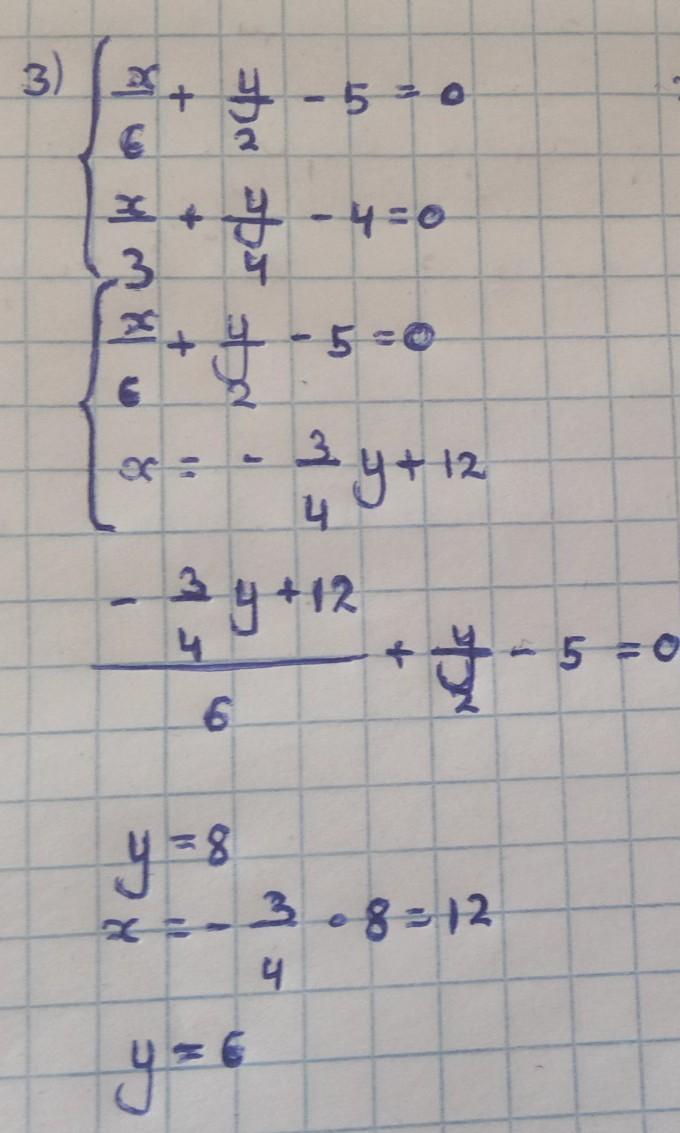 3) { x/6 + y/2 - 5 = 0
x/3 + y/4 - 4 = 0
{ x/6 + y/2 - 5 = 0
x = - 3/4 y + 12
(- 3/4 y + 12)/6 + y/2 - 5 = 0
y = 8
x = - 3/4 · 8 = 12
y = 6